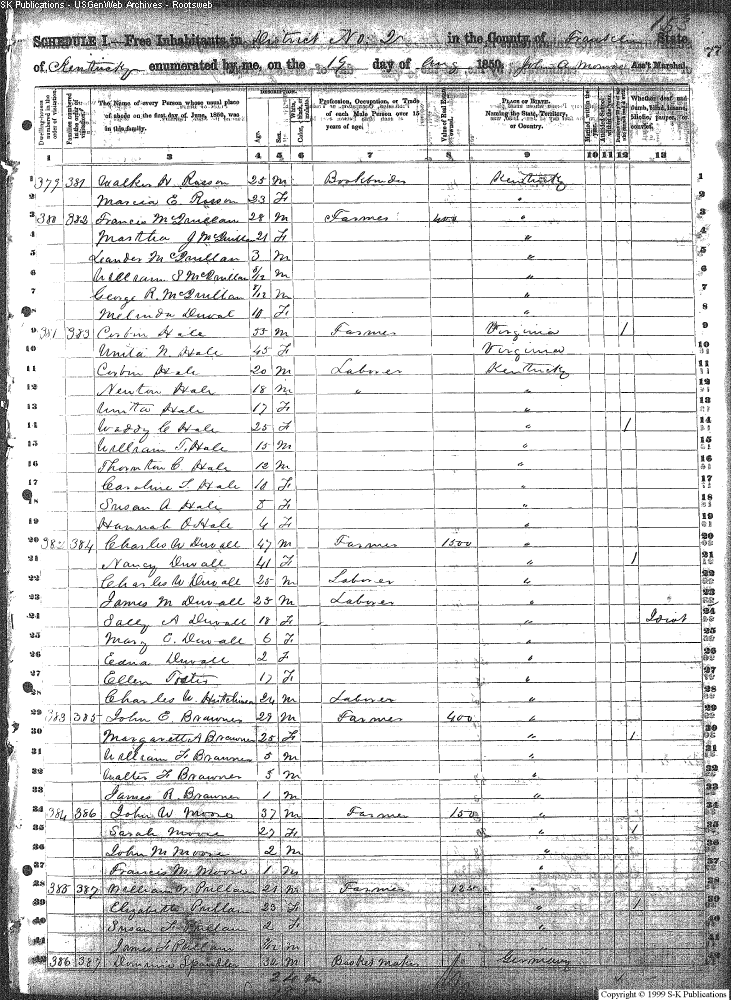 S-K Publications - USGenWeb Archives - Rootsweb
153
77
SCHEDULE I.—Free Inhabitants in District No. 2 in the County of Franklin State
of Kentucky enumerated by me, on the 19 day of Aug 1850. John A Monroe Ass't Marshal.
Dwelling-houses numbered in the order of visitation.
Families numbered in the order of visitation.
The Name of every Person whose usual place of abode on the first day of June, 1850, was in this family.
DESCRIPTION.
Age.
Sex.
Color, White, black, or mulatto.
Profession, Occupation, or Trade of each Male Person over 15 years of age.
Value of Real Estate owned.
PLACE OF BIRTH.
Naming the State, Territory, or Country.
Married within the year.
Whether deaf and dumb, blind, insane, idiotic, pauper, or convict.
1 2 3 4 5 6 7 8 9 10 11 12 13
1 379 381 Walker H. Rosson 25 M Bookbinder Kentucky 1
2 Marcia E. Rosson 23 F " 2
3 380 382 Francis McQuillan 28 M Farmer 400 " 3
4 Marttha J McQuillan 21 F " 4
5 Leander McQuillan 3 M " 5
6 William S McQuillan M " 6
7 George R. McQuillan M " 7
8 Melinda Duval 10 F " 8
9 381 383 Corbin Hale 55 M Farmer Virginia / 9
10 Unita N. Hale 45 F Virginia 10
11 Corbin Hale 20 M Laborer Kentucky 11
12 Newton Hale 18 M " " 12
13 Unita Hale 17 F " 13
14 Waddy C Hale 25 F " / 14
15 William T. Hale 15 M " 15
16 Thornton C. Hale 12 M " 16
17 Caroline T. Hale 10 F " 17
18 Susan A Hale 8 F " 18
19 Hannah O Hale 4 F " 19
20 382 384 Charles W Duvall 47 M Farmer 1500 " 20
21 Nancy Duvall 41 F " / 21
22 Charles W Duvall 25 M Laborer " 22
23 James M Duvall 23 M Laborer " 23
24 Sally A Duvall 18 F " Idiot 24
25 Mary C. Duvall 6 F " 25
26 Edna Duvall 2 F " 26
27 Ellen Foster 17 F " 27
28 Charles W. Hutchinson 24 M Laborer " 28
29 383 385 John E. Brawner 29 M Farmer 400 " 29
30 Margarett A Brawner 25 F " / 30
31 William F Brawner 5 M " 31
32 Walter F Brawner 3 M " 32
33 James R. Brawner 1 M " 33
34 384 386 John W Moore 37 M Farmer 150 " 34
35 Sarah Moore 27 F " / 35
36 John M Moore 2 M " 36
37 Francis M. Moore 1 M " 37
38 385 387 William Pullam 21 M Farmer 1250 " 38
39 Elizabeth Pullam 23 F " / 39
40 Susan F Pullam 2 F " 40
41 James Pullam M " 41
42 386 387 Spindler 32 M Basket maker Germany 42
24 M
Copyright © 1999 S-K Publications